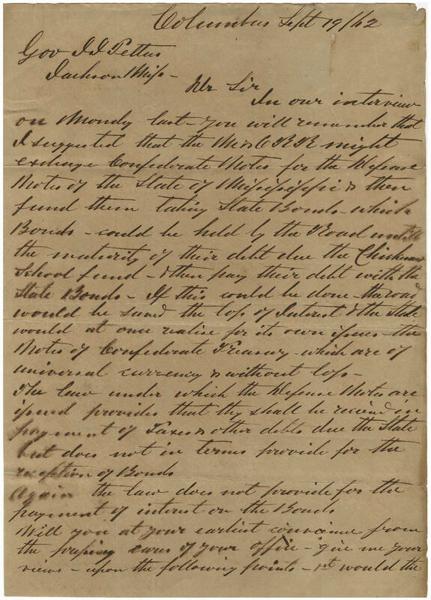 Columbus Sept 19/62
Gov J J Pettus
Jackson Miss -
Dr Sir
In our interview
on Monday last - you will remember that
I suggested that the M & O R R might
exchange Confederate Notes for the Defense
Notes of the State of Mississippi & then
fund them taking State Bonds - which
Bonds - could be held by the Road until
the maturity of their debt due the Chickasaw
School fund - & then pay their debt with the
State Bonds - If this could be done the road
would be saved the loss of Interest & the State
would at once realize for its own issues the
Notes of Confederate Treasury - which are of
universal currency & without loss -
The law under which the Defense Notes are
issued provides that they shall be received in
payment of Taxes & other debts due the State
but does not in terms provide for the
reception of Bonds
Again the law does not provide for the
payment of interest on the Bonds
Will you at your earliest convenience from
the pressing cares of your office - give me your
views - upon the following points - 1st would the